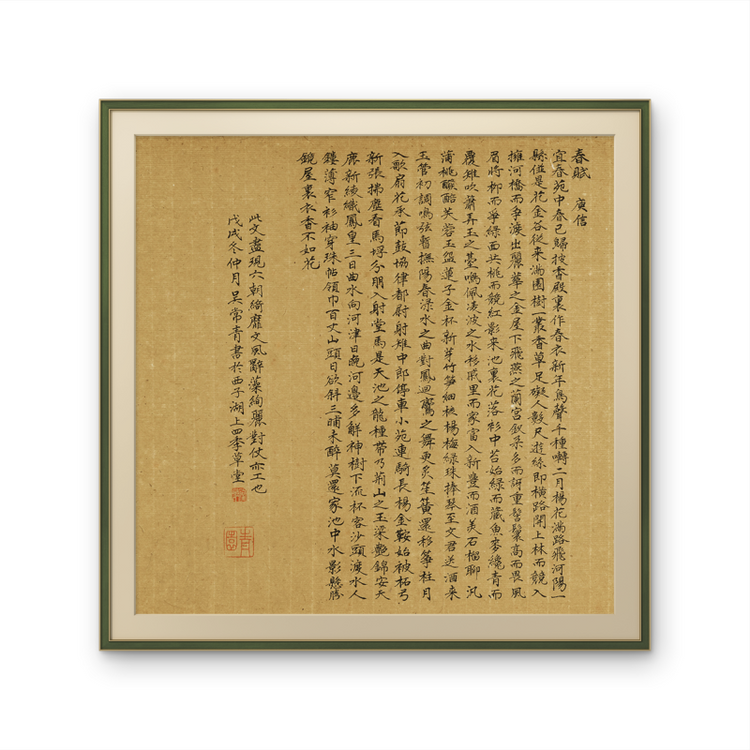 春賦 庾信
宜春苑中春已歸披香殿裏作春衣新年鳥聲千種囀二月楊花滿路飛河陽一
縣併是花金谷從來滿園樹一叢香草足礙人數尺遊絲即橫路開上林而競入
擁河橋而爭渡出麗華之金屋下飛燕之蘭宮釵朵多而訝重髻鬟高而畏風
眉將柳而爭綠面共桃而競紅影來池裏花落衫中苔始綠而藏魚麥纔青而
覆雉吹簫弄玉之臺鳴佩凌波之水移戚里而家富入新豐而酒美石榴聊汎
蒲桃醱醅芙蓉玉盌蓮子金杯新芽竹筍細核楊梅綠珠捧琴至文君送酒來
玉管初調鳴弦暫撫陽春淥水之曲對鳳迴鸞之舞更炙笙簧還移箏柱月
入歌扇花承節鼓協律都尉射雉中郎停車小苑連騎長楊金鞍始被柘弓
新張拂塵看馬埒分朋入射堂馬是天池之龍種帶乃荊山之玉梁艷錦安天
鹿新綾織鳳皇三日曲水向河津日晚河邊多解神樹下流杯客沙頭渡水人
鏤薄窄衫袖穿珠帖領巾百丈山頭日欲斜三晡未醉莫還家池中水影懸勝
鏡屋裏衣香不如花
此文盡現六朝綺靡文風辭藻絢麗對仗亦工也
戊戌冬仲月吳常青書於西子湖上四季草堂